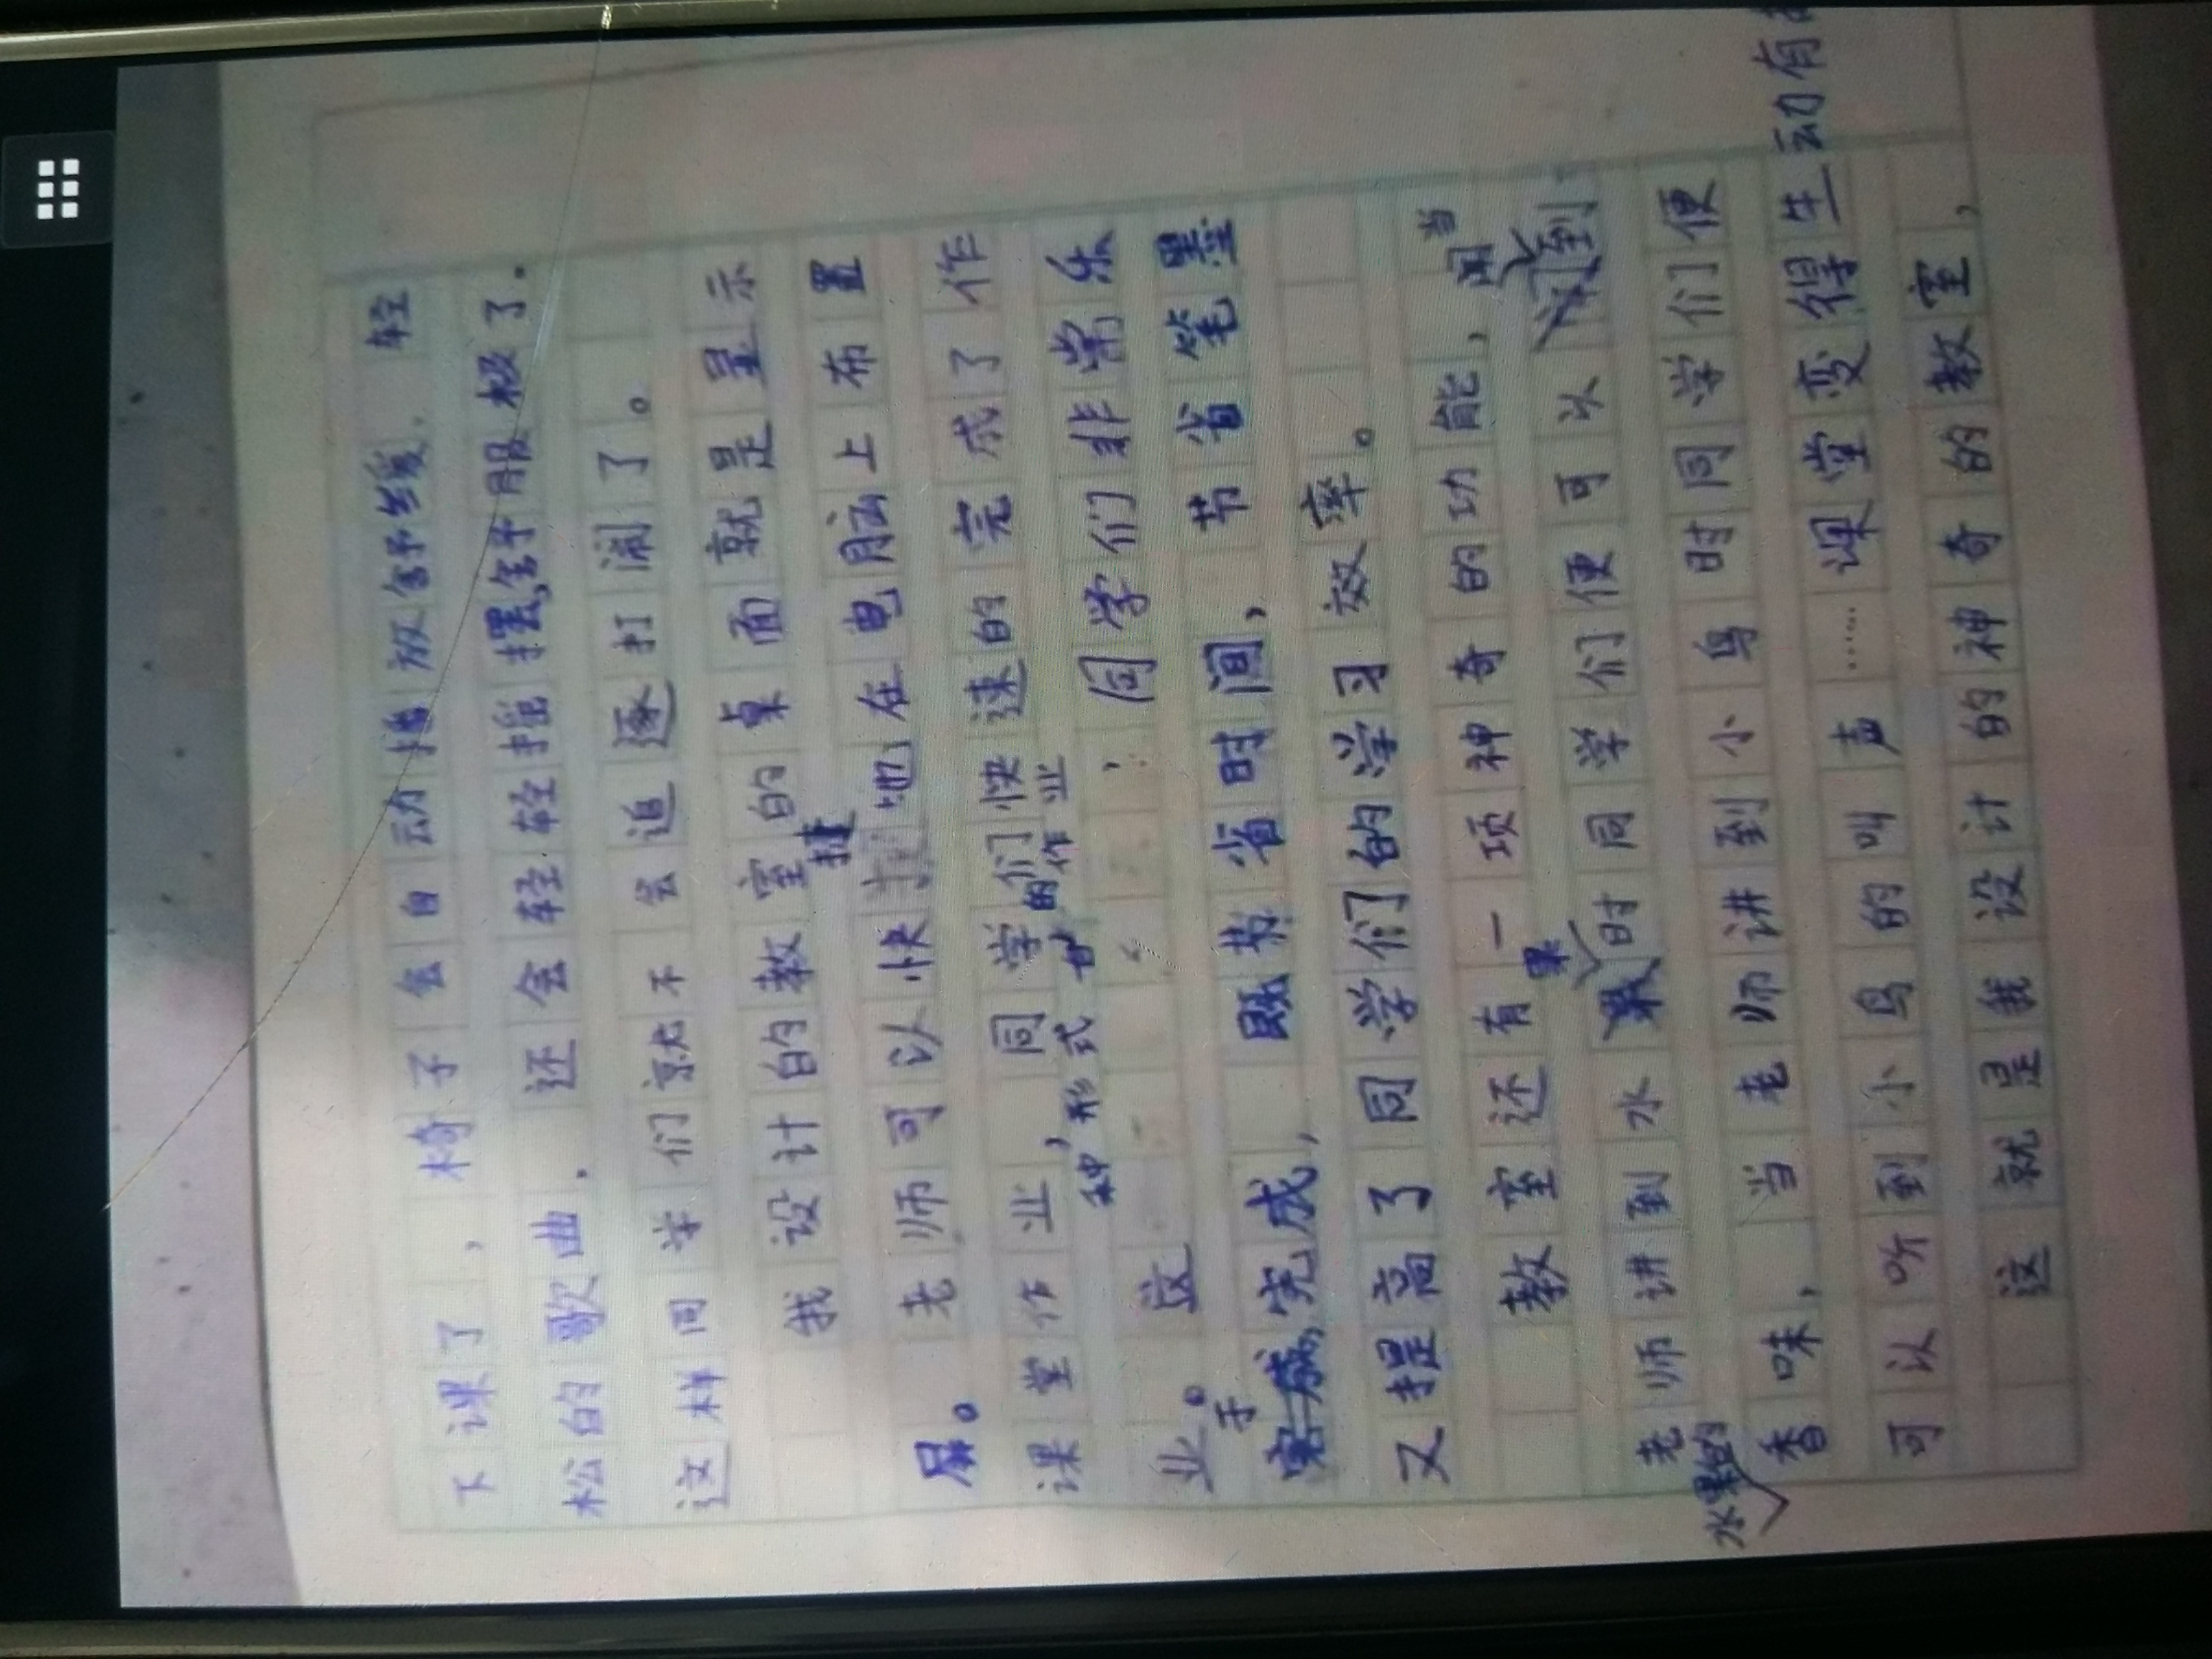 下课了，椅子会自动播放舒缓、轻
松的歌曲，还会轻轻摇摆，舒服极了。
这样同学们就不会追逐打闹了。
我设计的教室的桌面就是显示
屏。老师可以快捷地在电脑上布置
课堂作业，同学们快速的完成了作
业。这种形式的作业，同学们非常乐
于完成，既节省时间，节省笔墨
又提高了同学们的学习效率。
教室还有一项神奇的功能，当
老师讲到水果时同学们便可以闻到
水果的香味，当老师讲到小鸟时同学们便
可以听到小鸟的叫声……课堂变得生动有
这就是我设计的神奇的教室，